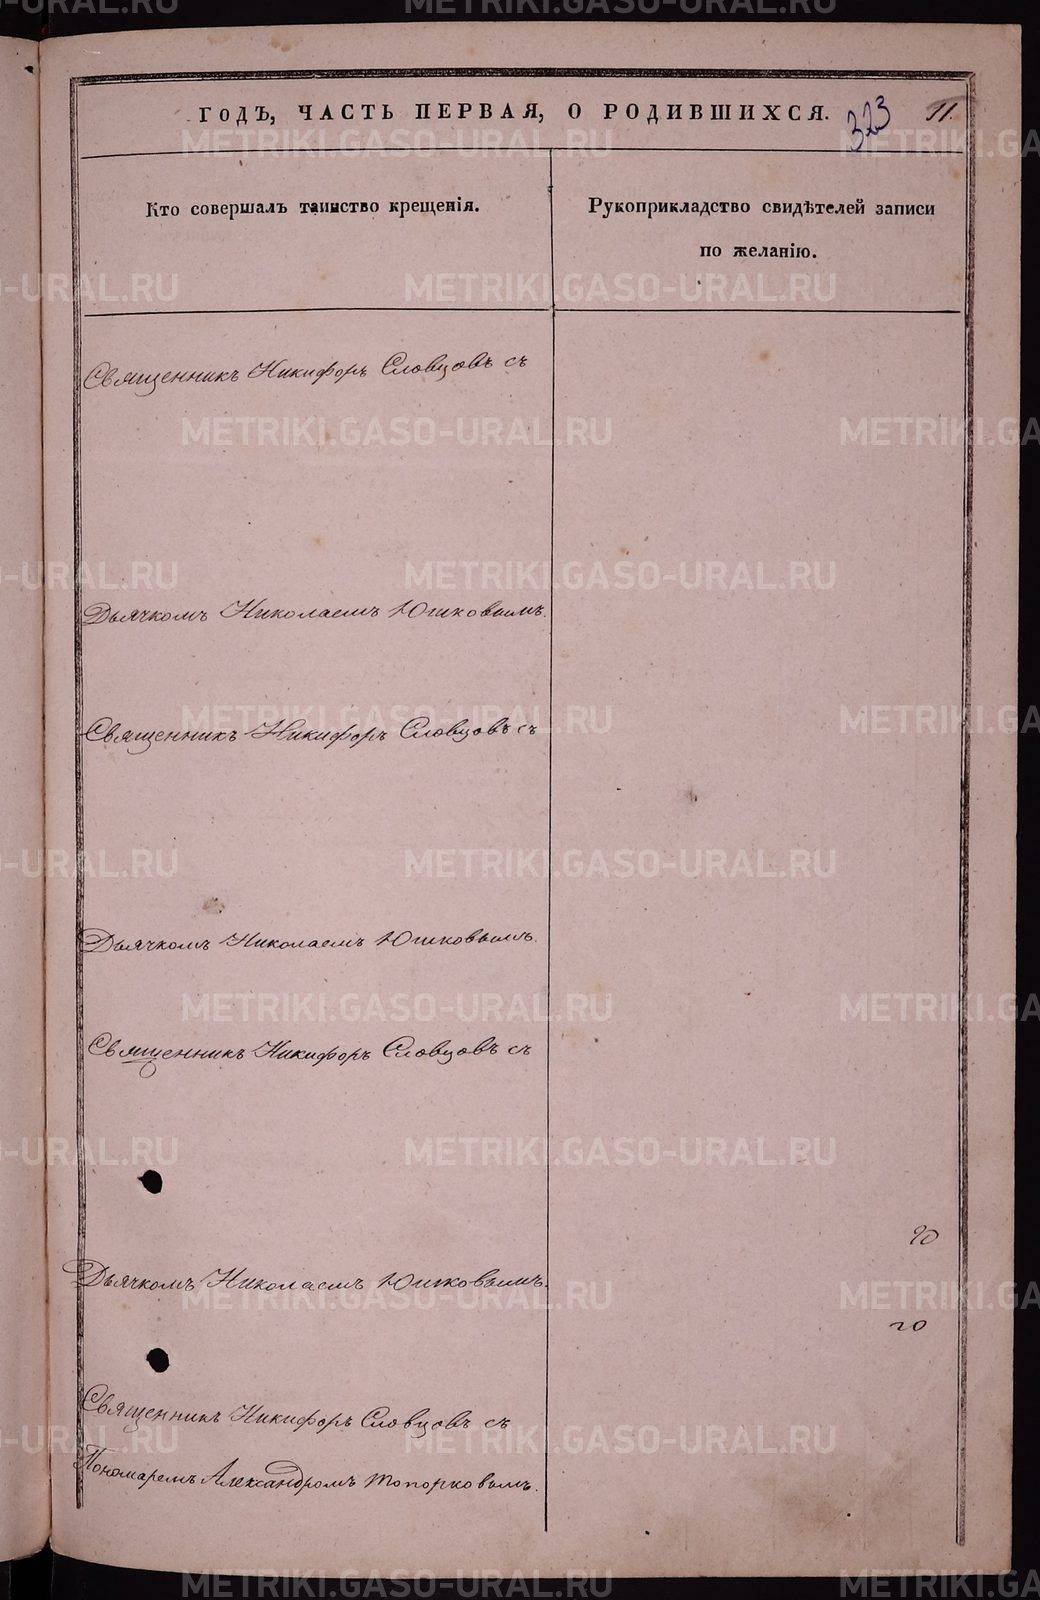 ГОДЪ, ЧАСТЬ ПЕРВАЯ, О РОДИВШИХСЯ. 323 11.
Кто совершалъ таинство крещенія.
Рукоприкладство свидѣтелей записи
по желанію.
Священникъ Никифоръ Словцовъ съ
Дьячкомъ Николаемъ Юшковымъ.
Священникъ Никифоръ Словцовъ съ
Дьячкомъ Николаемъ Юшковымъ.
Священникъ Никифоръ Словцовъ съ
20
Дьячкомъ Николаемъ Юшковымъ.
20
Священникъ Никифоръ Словцовъ съ
Пономаремъ Александромъ Топорковымъ.
METRIKI.GASO-URAL.RU